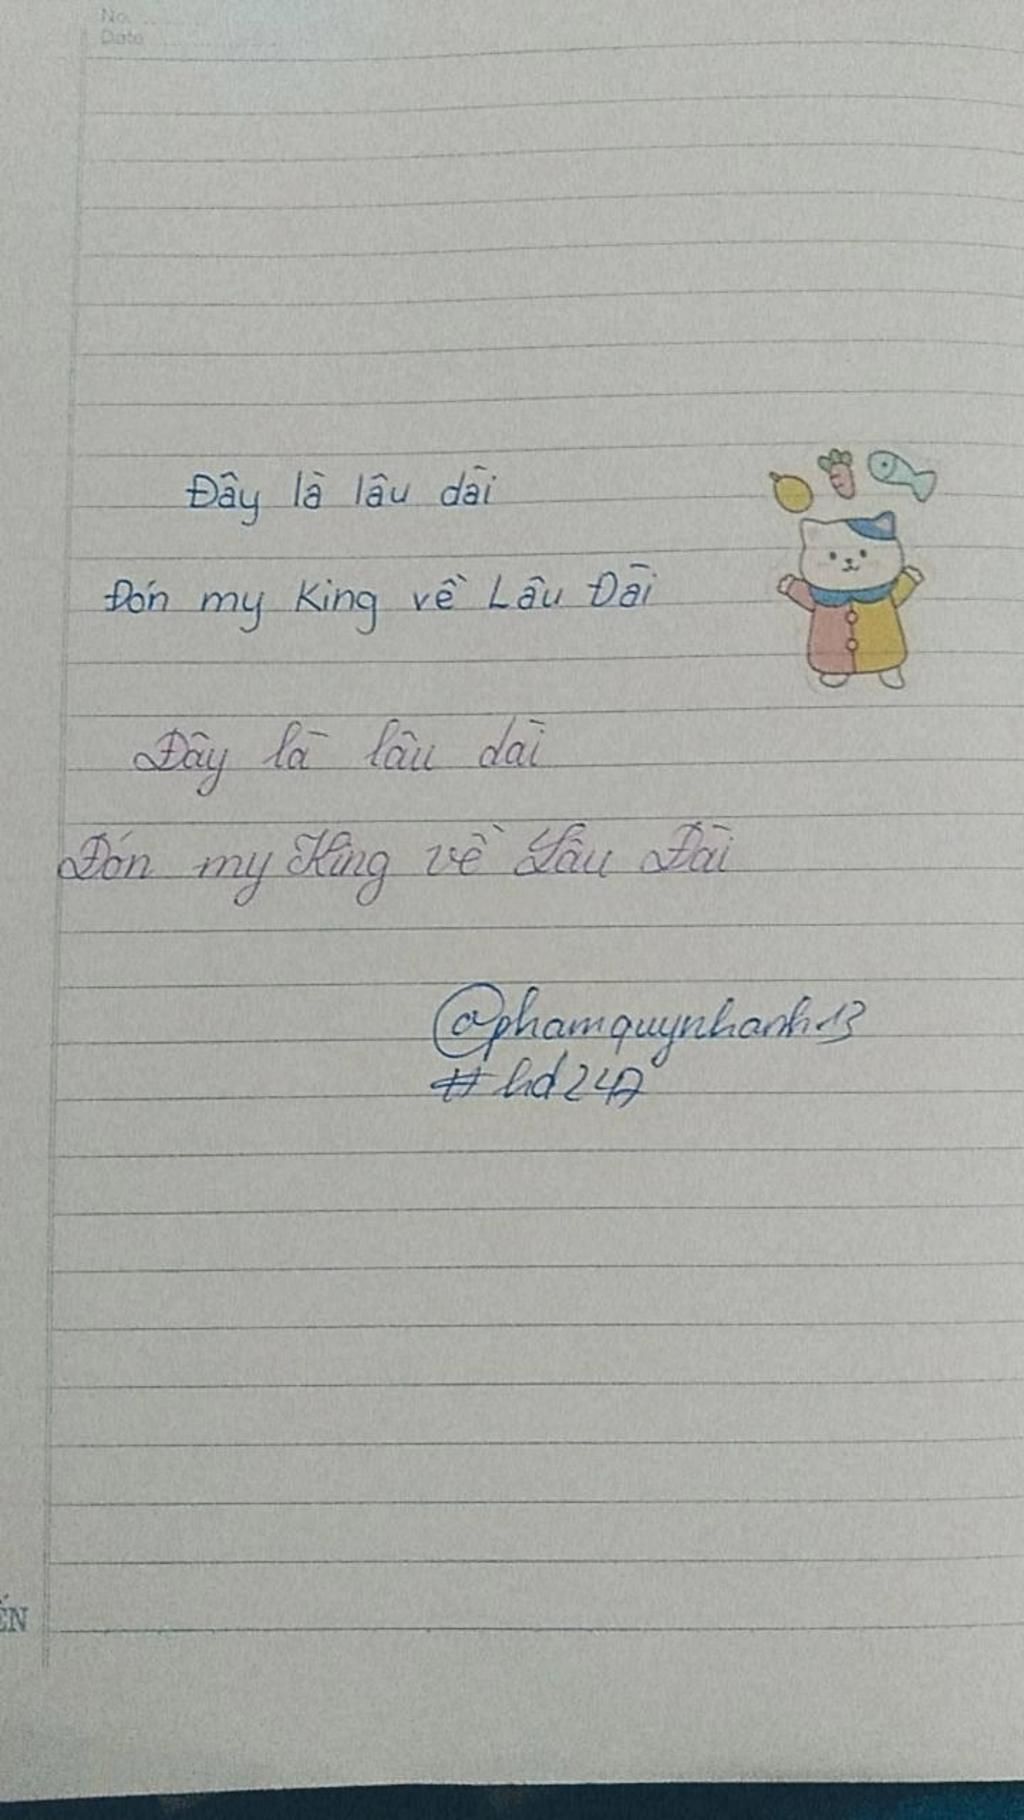 No.
Date
Đây là lâu dài
Đón my King về Lâu Đài
Đây là lâu dài
Đón my King về Lâu Đài
@phamquynhanh13
#hd247
ẾN